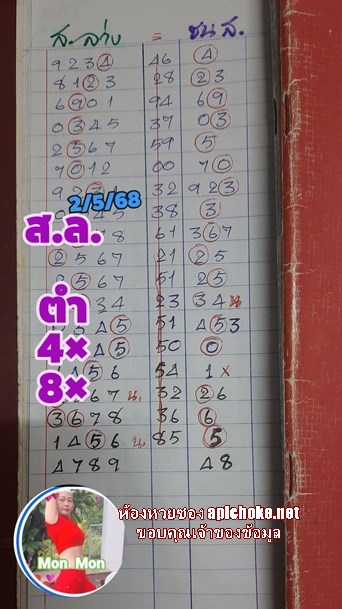 ส. ล่าง = ชน ส.
9 2 3 4 46 4
8 1 2 3 28 2 3
6 9 0 1 94 6 9
0 3 4 5 37 0 3
2 5 6 7 59 5
7 0 1 2 00 7 0
9 2 32 9 2 3
2/5/68
38 3
ส.ล. 8 61 3 6 7
2 5 6 7 21 2 5
5 6 7 51 2 5
ตำ 3 4 23 3 4 น
4 5 51 4 5 3
4× 4 5 50 0
5 6 54 1 ×
8× 6 7 น. 32 2 6
3 6 7 8 36 6
1 4 5 6 น. 85 5
4 7 8 9 4 8
ห้องหวยซอง apichoke.net
ขอบคุณเจ้าของข้อมูล
Mon Mon